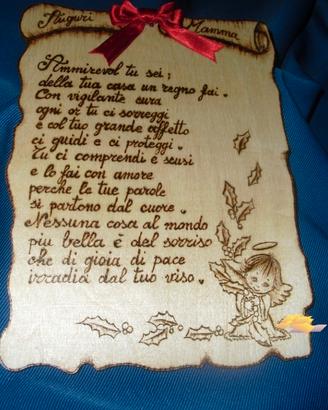 Auguri Mamma
Ammirevol tu sei ;
della tua casa un regno fai .
Con vigilante cura
ogni or tu ci sorreggi
e col tuo grande affetto
ci guidi e ci proteggi .
Tu ci comprendi e scusi
e lo fai con amore
perche le tue parole
si partono dal cuore .
Nessuna cosa al mondo
piu bella è del sorriso
che di gioia di pace
irradia dal tuo viso .